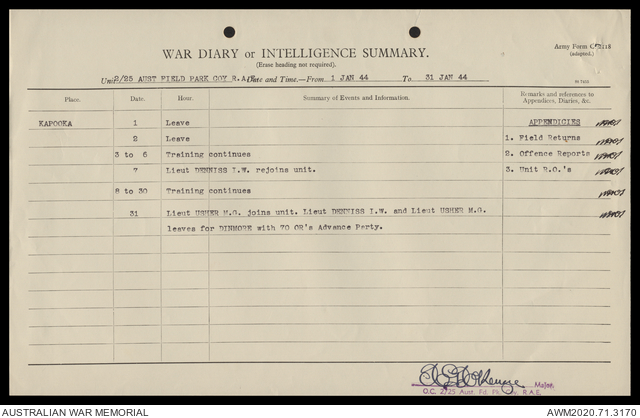 Army Form C.2118
WAR DIARY or INTELLIGENCE SUMMARY.
(Erase heading not required).
Unit 2/25 AUST FIELD PARK COY R.A.E. Date and Time.—From 1 JAN 44 To 31 JAN 44
Place. Date. Hour. Summary of Events and Information. Remarks and references to Appendices, Diaries, &c.
KAPOOKA 1 Leave APPENDICIES
2 Leave 1. Field Returns
3 to 6 Training continues 2. Offence Reports
7 Lieut DENNISS I.W. rejoins unit. 3. Unit R.O.'s
8 to 30 Training continues
31 Lieut USHER M.G. joins unit. Lieut DENNISS I.W. and Lieut USHER M.G.
leaves for DINMORE with 70 OR's Advance Party.
Major,
O.C. 2/25 Aust. Fd. Pk. R.A.E.
AUSTRALIAN WAR MEMORIAL AWM2020.71.3170